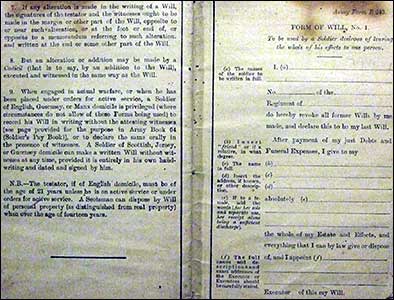 7. If any alteration is made in the writing of a Will,
the signatures of the testator and the witnesses ought to be
made in the margin or other part of the Will, opposite to
or near such alteration, or at the foot or end of, or
opposite to a memorandum referring to such alteration,
and written at the end or some other part of the Will.
8. But an alteration or addition may be made by a
Codicil (that is to say, by an addition to the Will),
executed and witnessed in the same way as the Will.
9. When engaged in actual warfare, or when he has
been placed under orders for active service, a Soldier
of English, Guernsey, or Manx domicile is privileged (where
circumstances do not allow of these Forms being used) to
record his Will in writing without the attesting witnesses
(see page provided for the purpose in Army Book 64
(Soldier's Pay Book), or to declare the same orally in
the presence of witnesses. A Soldier of Scottish, Jersey,
or Guernsey domicile can make a written Will without wit-
nesses at any time, provided it is entirely in his own hand-
writing and dated and signed by him.
N.B.—The testator, if of English domicile, must be of
the age of 21 years unless he is on active service or under
orders for active service. A Scotsman can dispose by Will
of personal property (as distinguished from real property)
when over the age of fourteen years.
Army Form B 243.
FORM OF WILL, No. 1.
To be used by a Soldier desirous of leaving
the whole of his effects to one person.
(a) The names
of the soldier to
be written in full.
I, (a)
No. of the
Regiment of
do hereby revoke all former Wills by me
made, and declare this to be my last Will.
After payment of my just Debts and
Funeral Expenses, I give to my
(b) Insert
"friend" or if a
relative, in what
degree.
(b)
(c) The name
in full.
(c)
(d) Insert the
address, if known,
or other descrip-
(d)
absolutely (e)
the whole of my Estate and Effects, and
everything that I can by law give or dispose
of, and I appoint (f)
(f) The full
names and de-
scriptions and
exact addresses of
the Executor or
Executors should
be carefully stated.
Executor of this my Will.